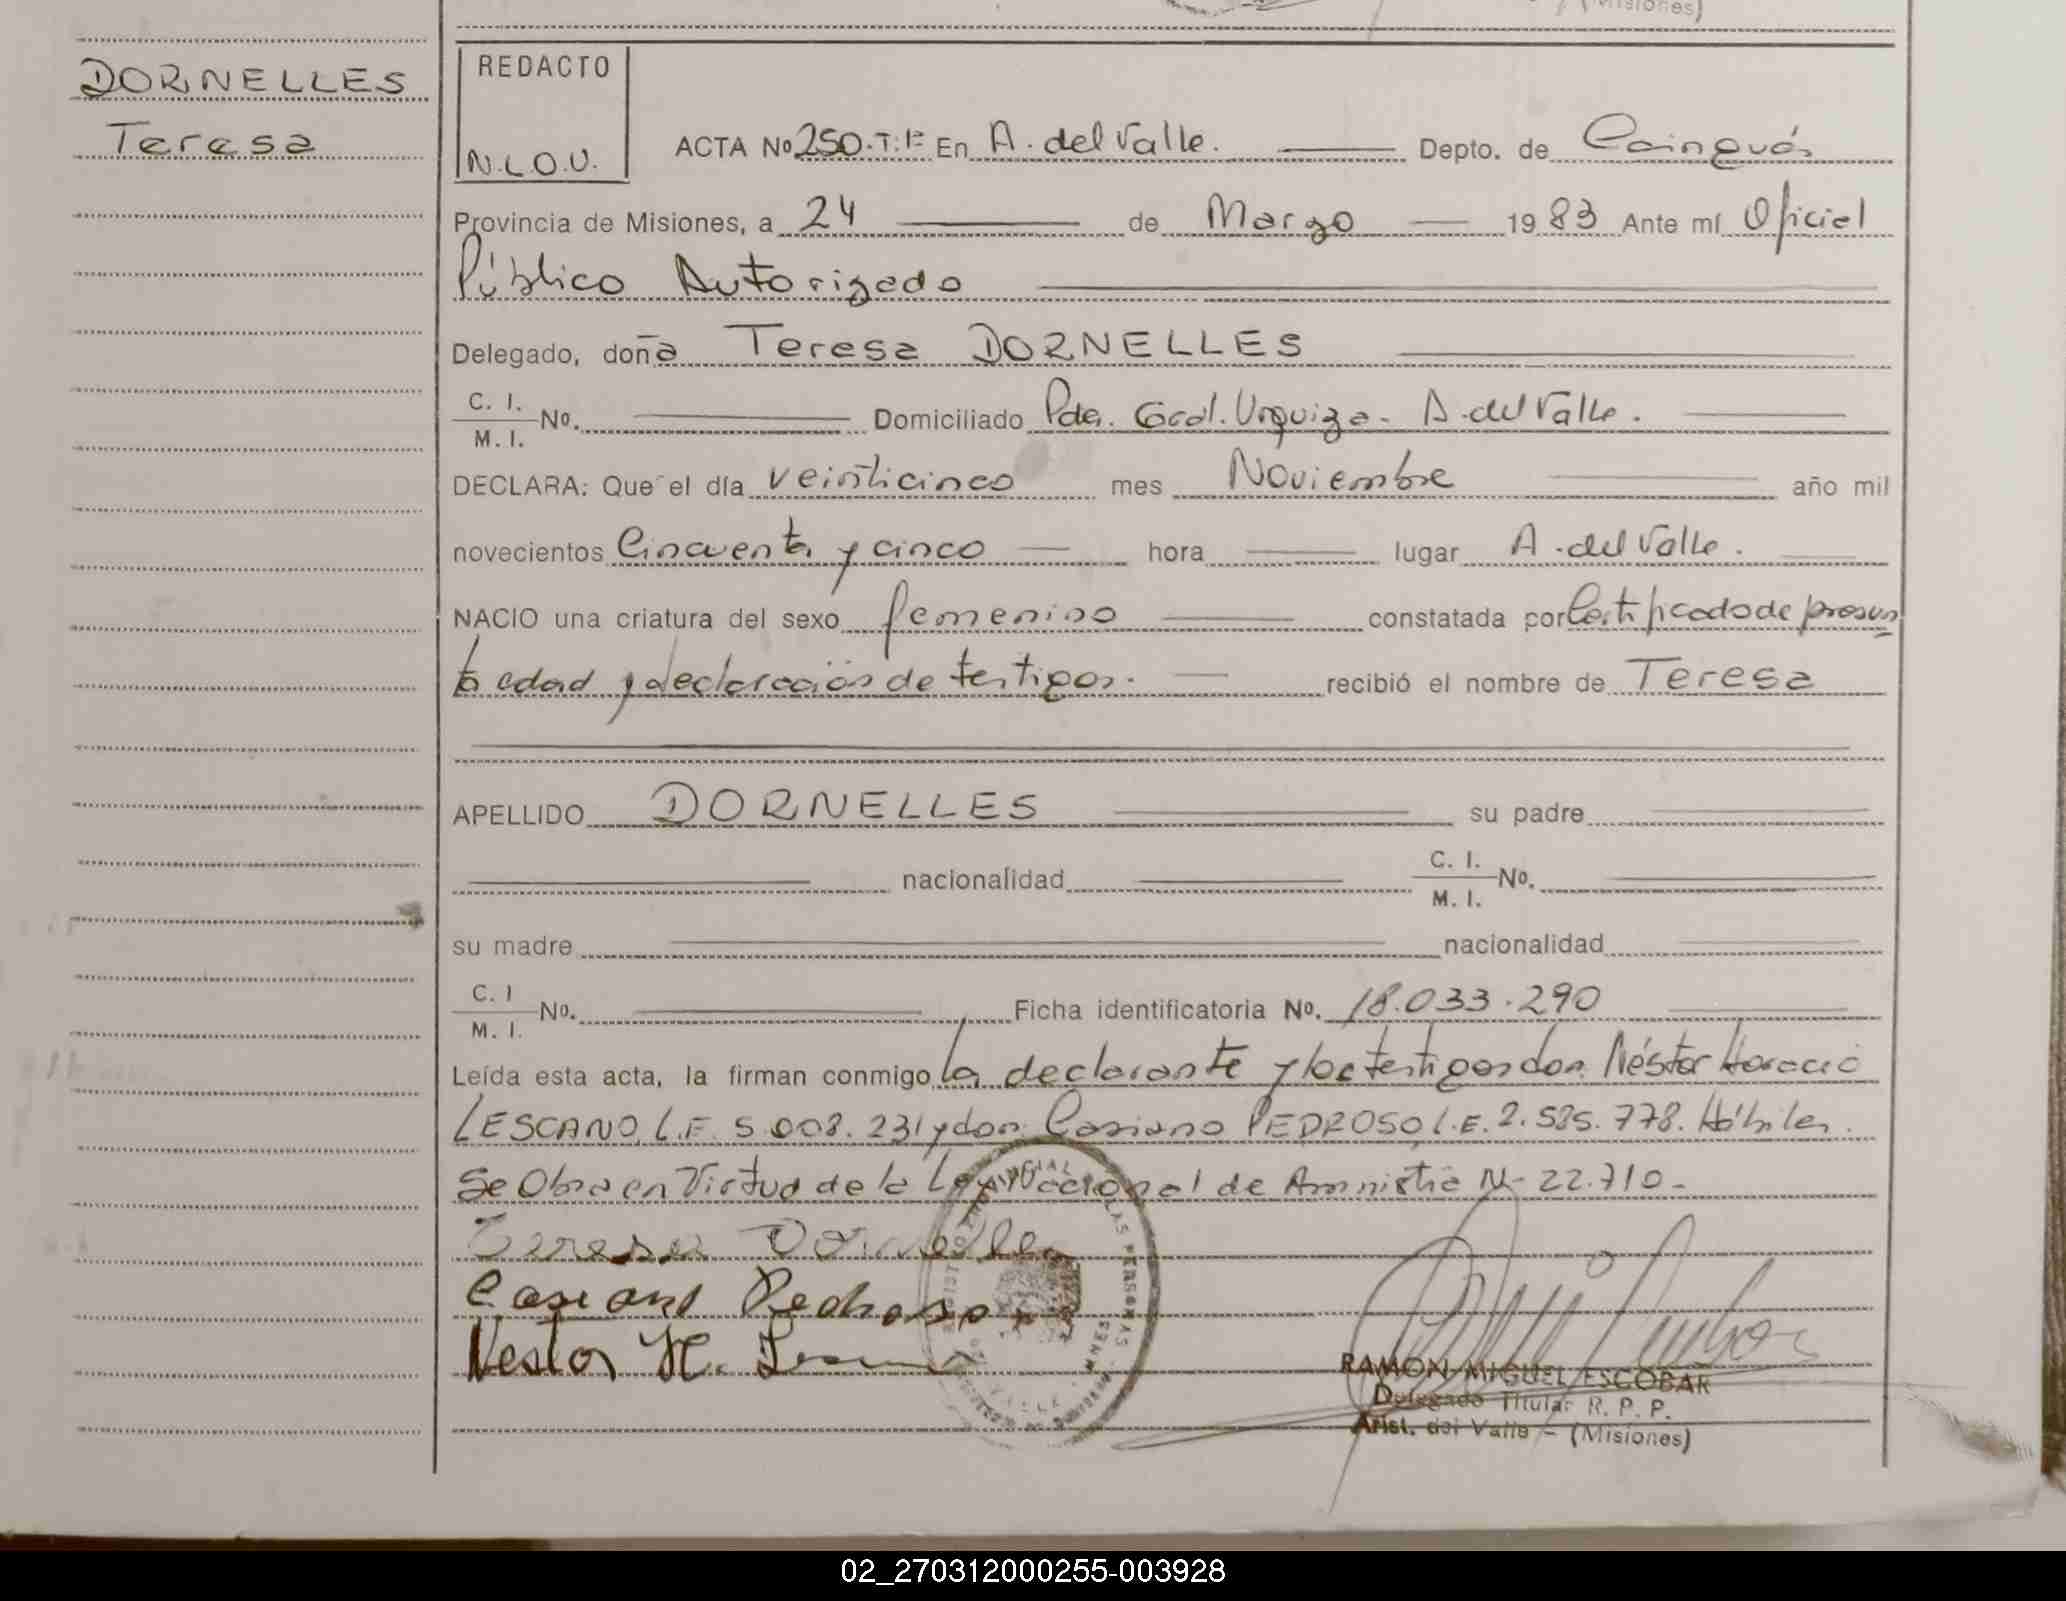 (Misiones)
DORNELLES
Teresa
REDACTO
N.L.O.U.
ACTA Nº 250.T:Iº En A. del Valle. Depto. de Cainguás
Provincia de Misiones, a 24 de Marzo 1983 Ante mí Oficial
Público Autorizado
Delegado, doña Teresa DORNELLES
C. I.
M. I. Nº. Domiciliado Pda. Gral. Urquiza - A. del Valle.
DECLARA: Que el día veinticinco mes Noviembre año mil
novecientos Cincuenta y cinco hora lugar A. del Valle.
NACIO una criatura del sexo femenino constatada por Certificado de presun
ta edad y declaración de testigos. recibió el nombre de Teresa
APELLIDO DORNELLES su padre
nacionalidad C. I.
M. I. Nº.
su madre nacionalidad
C. I
M. I. Nº. Ficha identificatoria Nº. 18.033.290
Leída esta acta, la firman conmigo la declarante y los testigos don Néstor Horacio
LESCANO, L.E. 5.008.231 y don Casiano PEDROSO, L.E. 2.585.778. Hábiles.
Se Obra en Virtud de la Ley Nacional de Amnistia Nº 22.710-
Teresa Dornelles
Casiano Pedroso
Nestor H.
RAMON MIGUEL ESCOBAR
Delegado Titular R. P. P.
Arist. del Valle - (Misiones)
02_270312000255-003928